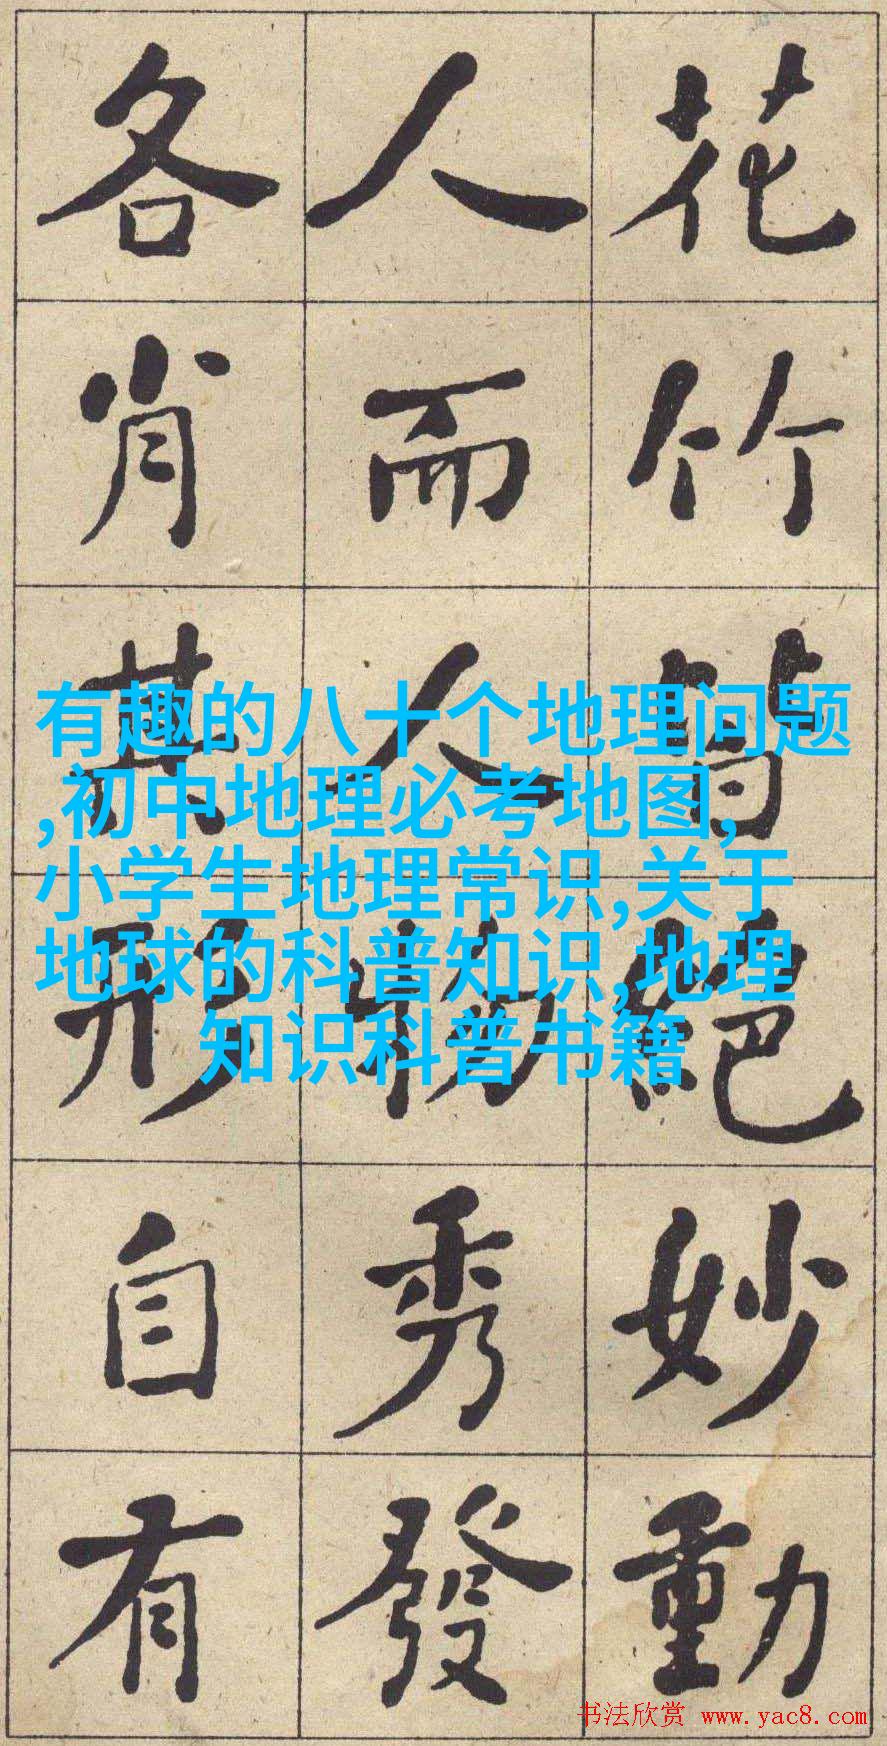 花竹皆絕妙動
人而人物秀發
各肖其形自有
有趣的八十个地理问题
,初中地理必考地图,
小学生地理常识,关于
地球的科普知识,地理
知识科普书籍
书法欣赏 www.yac8.com